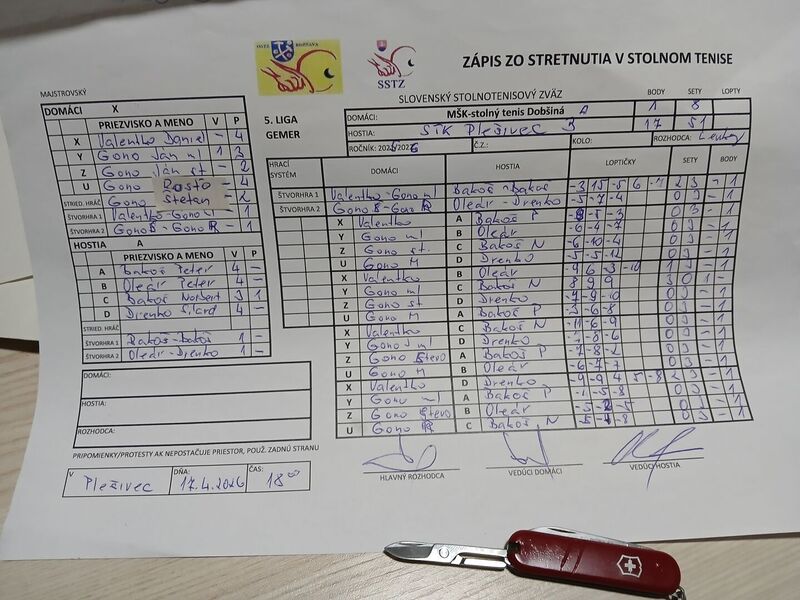 OSTZ ROŽŇAVA
SSTZ
ZÁPIS ZO STRETNUTIA V STOLNOM TENISE
SLOVENSKÝ STOLNOTENISOVÝ ZVÄZ
MAJSTROVSKÝ
DOMÁCI X
PRIEZVISKO A MENO V P
X Valentko Daniel - 4
Y Gono Ján ml 1 3
Z Gono Ján st - 2
U Gono Rasťo - 4
STRIED. HRÁČ Gono Štefan - 2
ŠTVORHRA 1 Valentko-Gono - 1
ŠTVORHRA 2 Gono - Gono - 1
HOSTIA A
PRIEZVISKO A MENO V P
A Bakoš Peter 4 -
B Oleár Peter 4 -
C Bakoš Norbert 3 1
D Drenko Silard 4 -
STRIED. HRÁČ
ŠTVORHRA 1 Bakoš-Bakoš 1 -
ŠTVORHRA 2 Oleár-Drenko 1 -
DOMÁCI:
HOSTIA:
ROZHODCA:
PRIPOMIENKY/PROTESTY AK NEPOSTAČUJE PRIESTOR, POUŽ. ZADNÚ STRANU
V Plešivec DŇA: 17.4.2026 ČAS: 18 00
5. LIGA
GEMER
BODY SETY LOPTY
DOMÁCI: MŠK-stolný tenis Dobšiná A 1 8
HOSTIA: STK Plešivec B 17 51
ROČNÍK: Č.Z.: KOLO: ROZHODCA:
HRACÍ SYSTÉM DOMÁCI HOSTIA LOPTIČKY SETY BODY
ŠTVORHRA 1 Valentko-Gono ml Bakoš-Bakoš 2 3 - 1
ŠTVORHRA 2 Gono - Gono Oleár-Drenko -5 -7 -4 0 3 - 1
X Valentko A Bakoš P 0 3 - 1
Y Gono ml B Oleár -6 -4 -7 0 3 - 1
Z Gono st. C Bakoš N -6 -10 -4 0 3 - 1
U Gono M D Drenko -5 -5 -12 0 3 - 1
X Valentko B Oleár 1 3 - 1
Y Gono ml C Bakoš N 8 9 9 3 0 1 -
Z Gono st D Drenko 0 3 - 1
U Gono M A Bakoš P 0 3 - 1
X Valentko C Bakoš N -11 -6 -9 0 3 - 1
Y Gono ml D Drenko 0 3 - 1
Z Gono Števo A Bakoš P -7 -8 -2 0 3 - 1
U Gono M B Oleár -6 -7 -7 0 3 - 1
X Valentko D Drenko -9 -9 4 5 -8 2 3 - 1
Y Gono ml A Bakoš P 0 3 - 1
Z Gono Števo B Oleár 0 3 - 1
U Gono C Bakoš N 0 3 - 1
HLAVNÝ ROZHODCA
VEDÚCI DOMÁCI
VEDÚCI HOSTIA